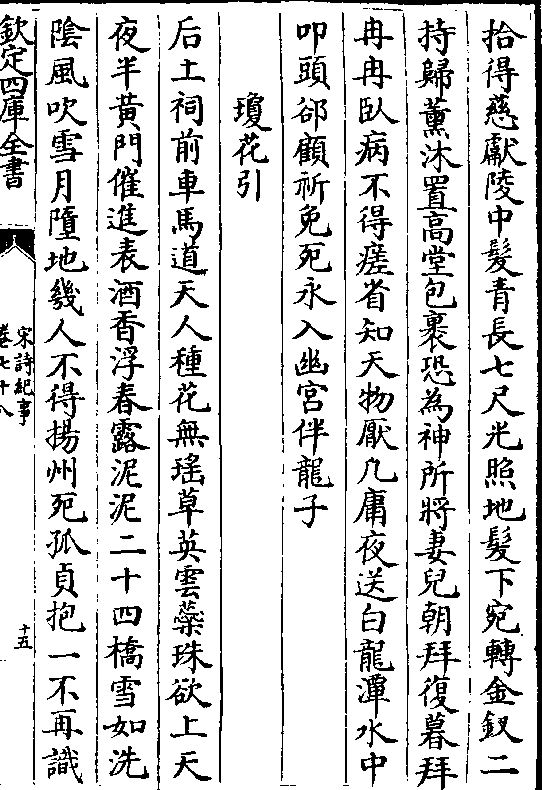 拾得慈獻陵中髮青長七尺光照地髮下宛轉金釵二
持歸薰沐置高堂包裹恐為神所將妻兒朝拜復暮拜
冉冉臥病不得瘥省知天物厭凡庸夜送白龍潭水中
叩頭郤顧祈免死永入幽宮伴龍子
瓊花引
后土祠前車馬道天人種花無瑤草英雲蘂珠欲上天
夜半黃門催進表酒香浮春露泥泥二十四橋雪如洗
陰風吹雪月墮地幾人不得揚州死孤貞抱一不再識
欽定四庫全書
宋詩紀事
卷七十八
十五